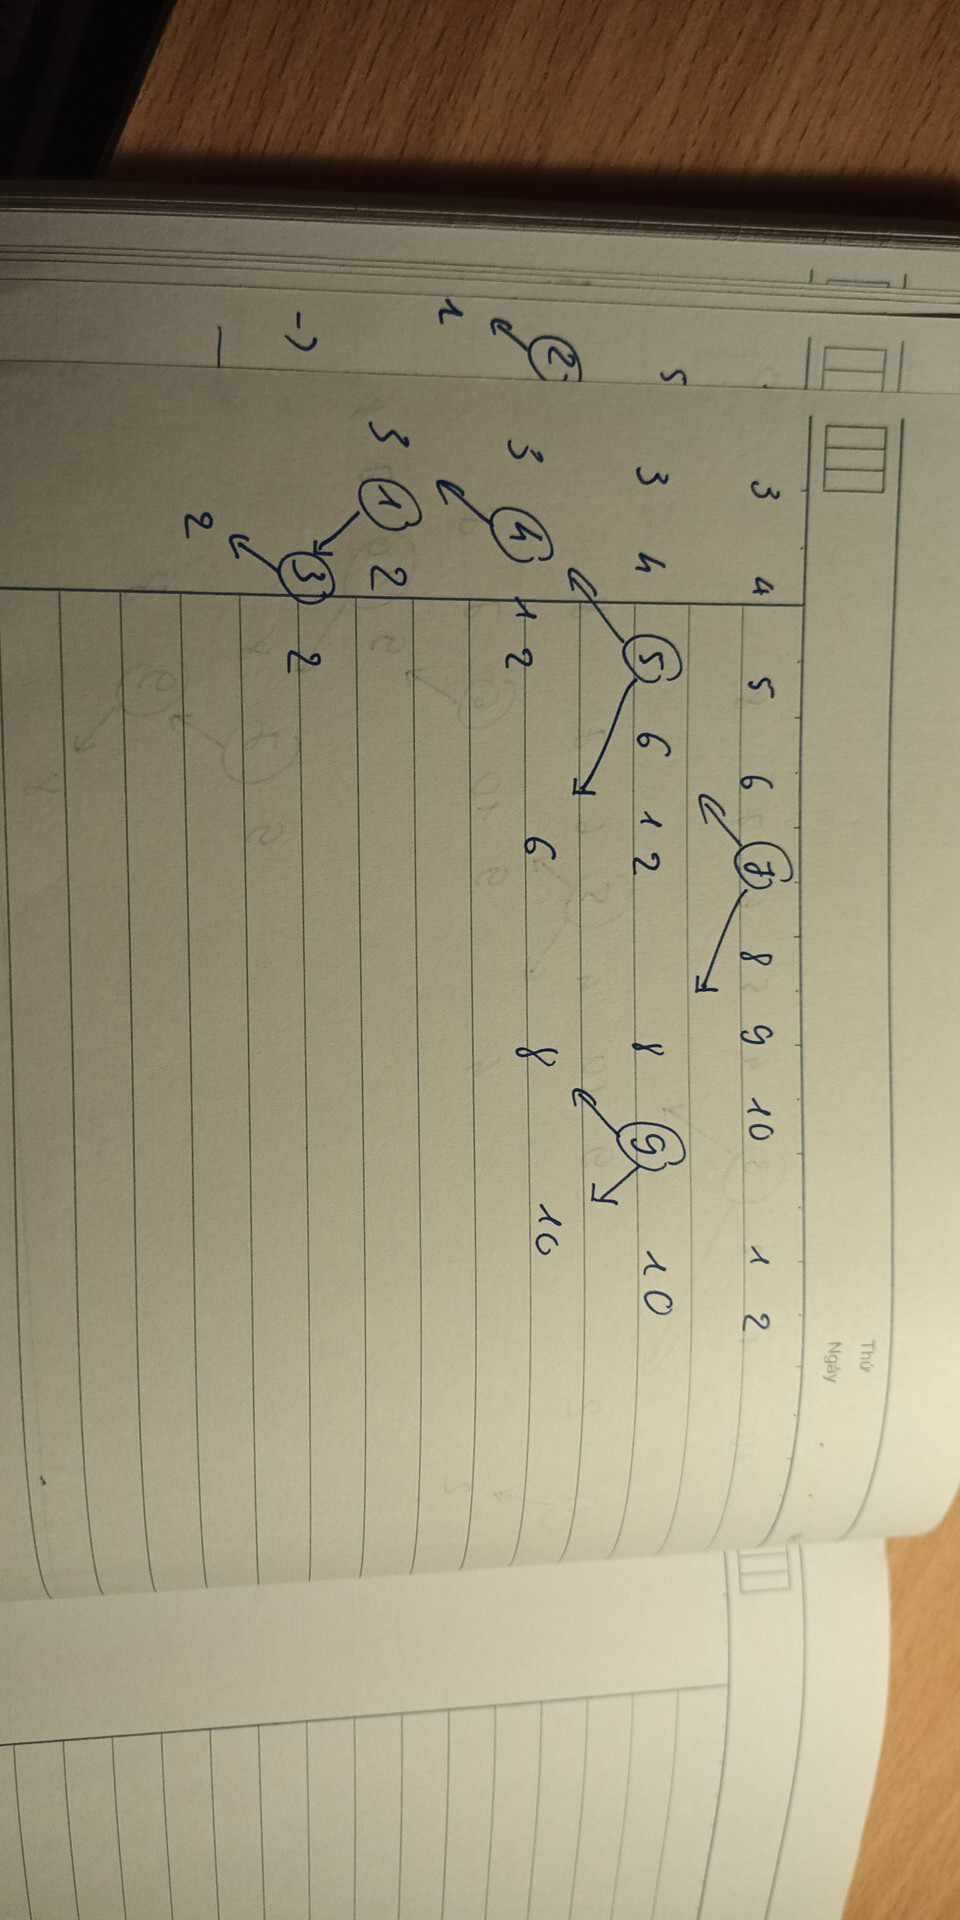 Thứ
Ngày
3 4 5 6 7 8 9 10 1 2
5
3 4 5 6 1 2 8 9 10
2
3 4 1 2 6 8 10
1
3 1 2
3 2
2